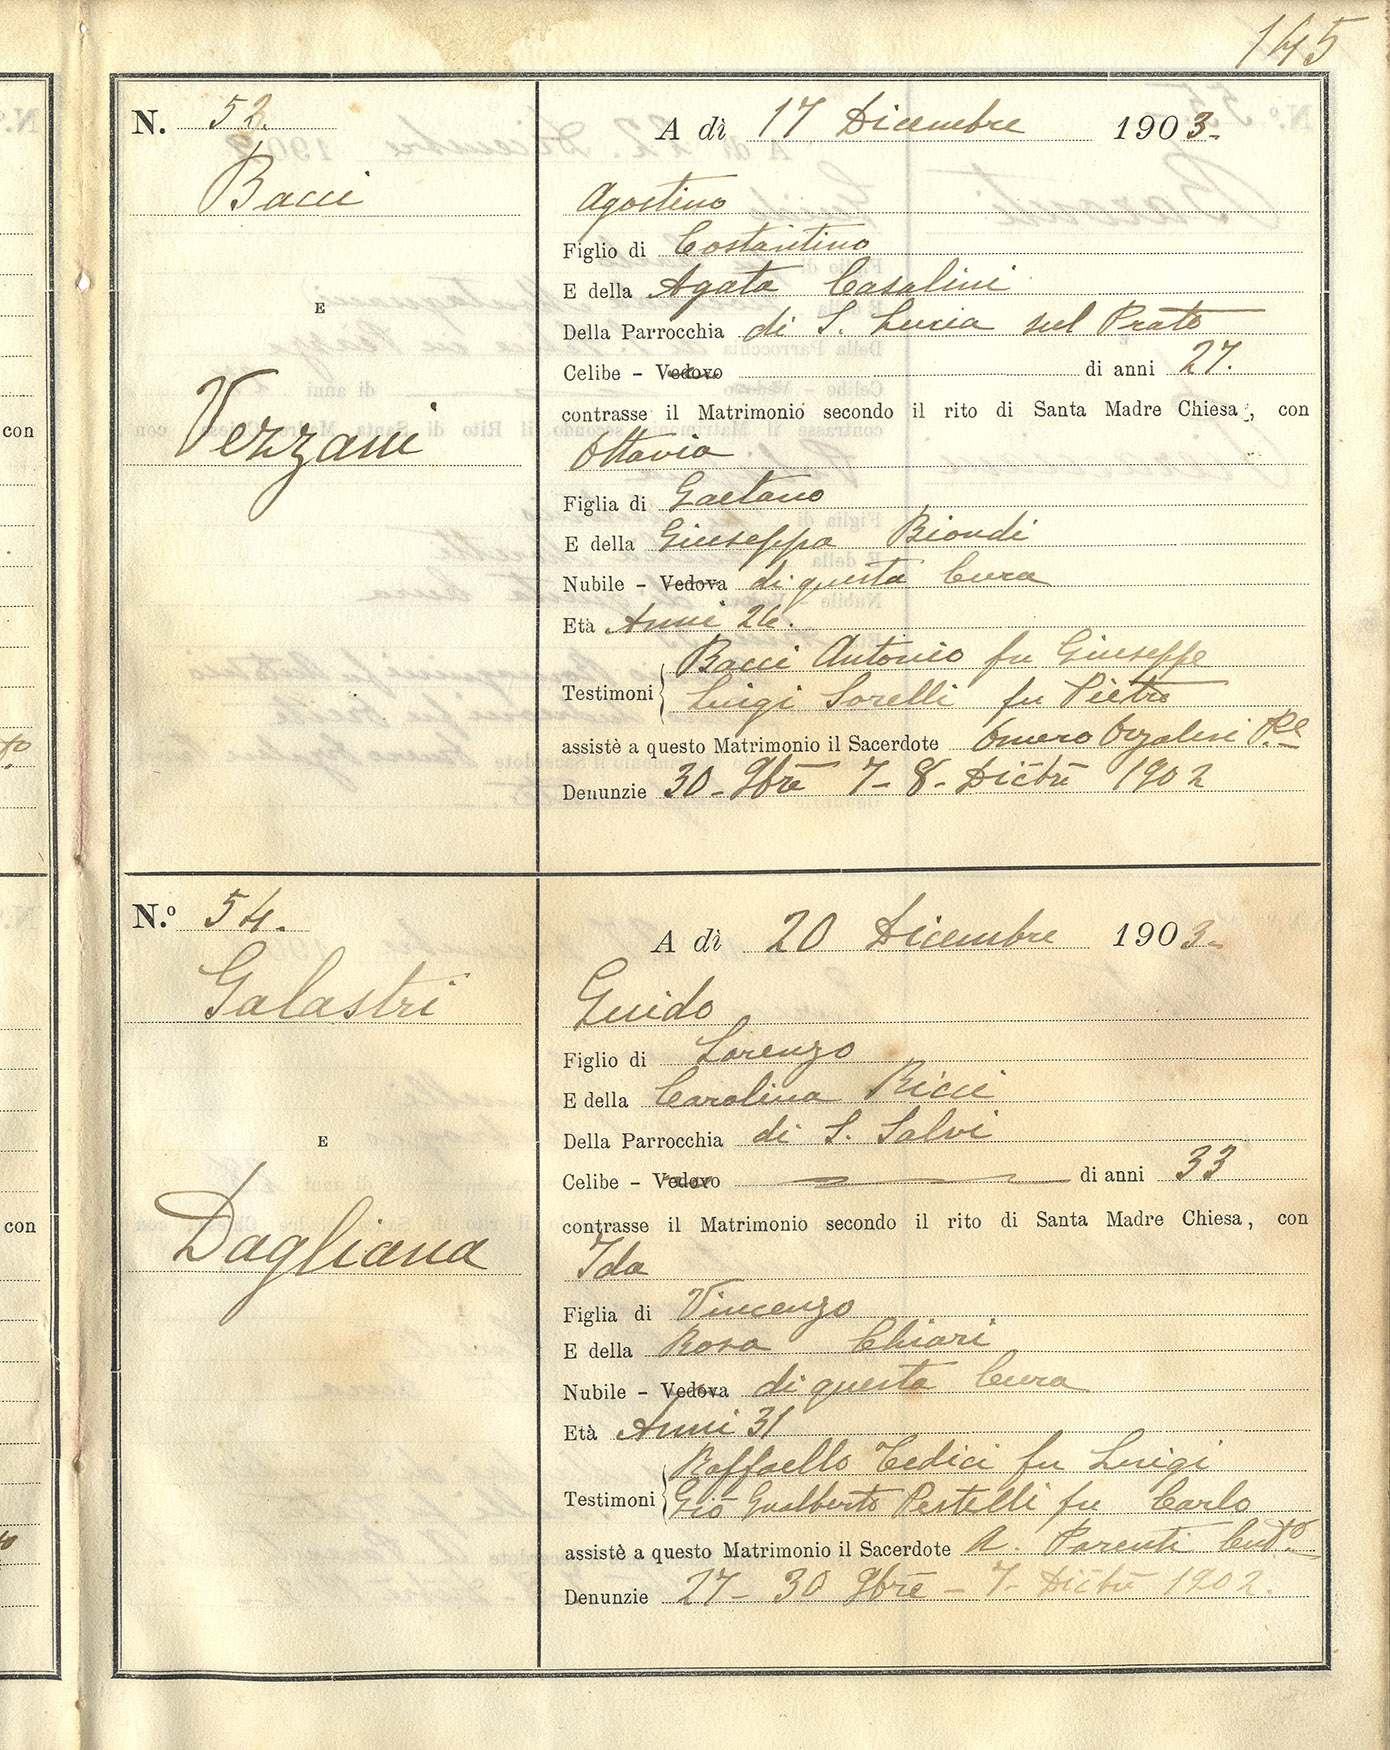 145
N. 52.
A dì 17 Dicembre 1903.
Bacci
Agostino
Figlio di Costantino
E della Agata Casalini
E
Della Parrocchia di S. Lucia sul Prato
Celibe - Vedovo di anni 27.
contrasse il Matrimonio secondo il rito di Santa Madre Chiesa, con
Vezzani
Ottavia
Figlia di Gaetano
E della Giuseppa Biondi
Nubile - Vedova di questa Cura
Età Anni 26.
Testimoni
Bacci Antonio fu Giuseppe
Luigi Sorelli fu Pietro
assistè a questo Matrimonio il Sacerdote Omero Orzalesi
Denunzie 30 - 9bre 7 - 8 - Dicbr 1902
N.º 54.
A dì 20 Dicembre 1903.
Galastri
Guido
Figlio di Lorenzo
E della Carolina Ricci
E
Della Parrocchia di S. Salvi
Celibe - Vedovo di anni 33
contrasse il Matrimonio secondo il rito di Santa Madre Chiesa, con
Dagliana
Ida
Figlia di Vincenzo
E della Rosa Chiari
Nubile - Vedova di questa Cura
Età Anni 31
Testimoni
Raffaello Tedici fu Luigi
Gio Gualberto Pestelli fu Carlo
assistè a questo Matrimonio il Sacerdote A. Parenti
Denunzie 27 - 30 9bre - 7 - Dicbr 1902.
con
con